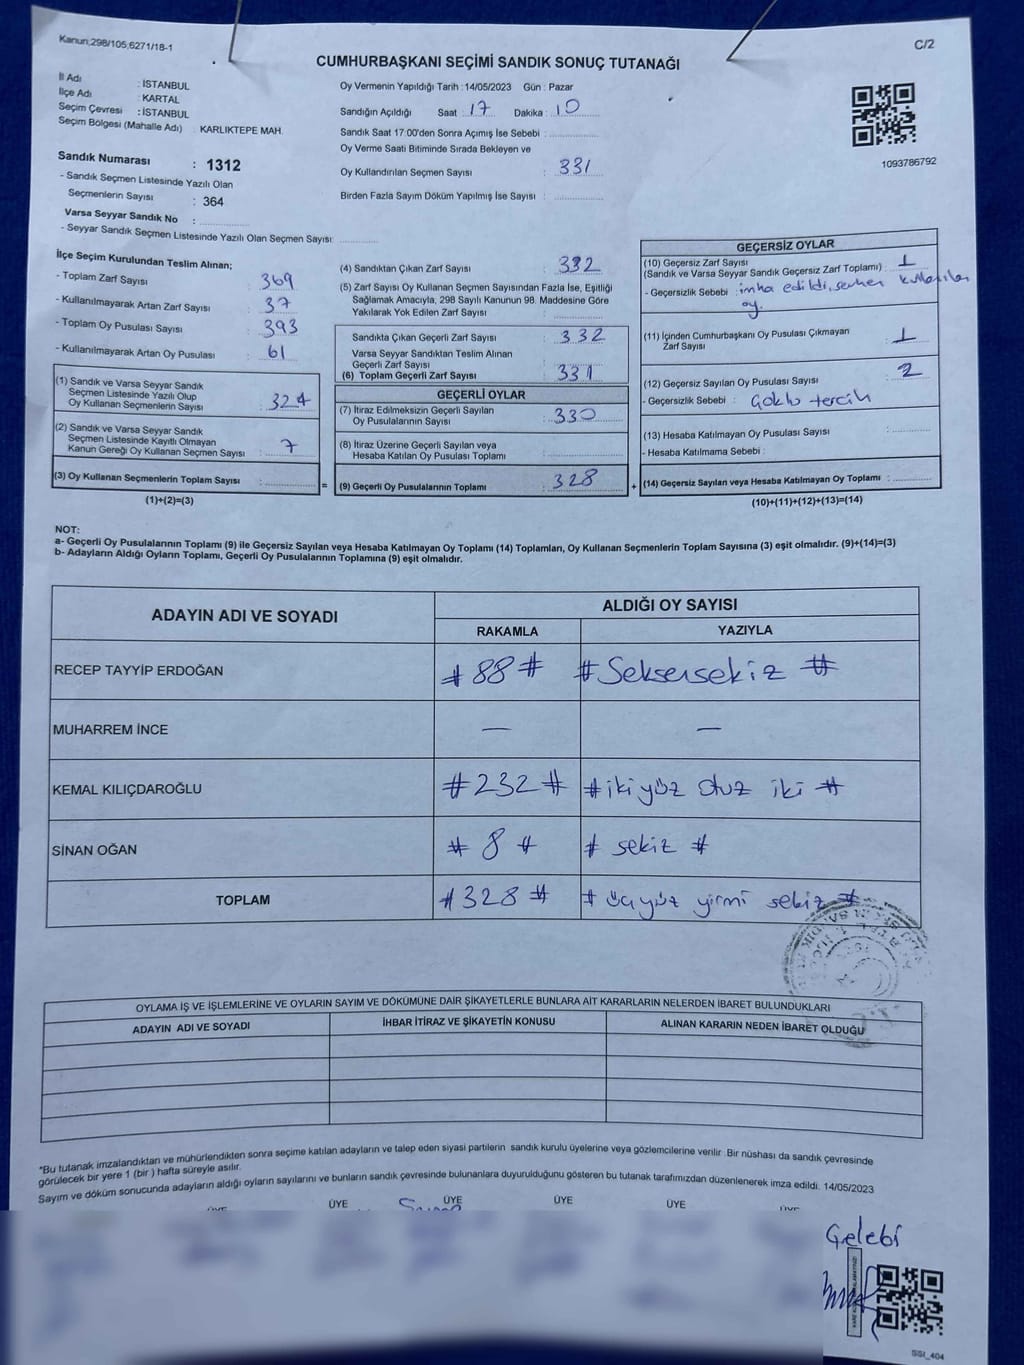 Kanun;298/105,6271/18-1
C/2
CUMHURBAŞKANI SEÇİMİ SANDIK SONUÇ TUTANAĞI
İl Adı : İSTANBUL
İlçe Adı : KARTAL
Seçim Çevresi : İSTANBUL
Seçim Bölgesi (Mahalle Adı) : KARLIKTEPE MAH.
Sandık Numarası : 1312
- Sandık Seçmen Listesinde Yazılı Olan
Seçmenlerin Sayısı : 364
Varsa Seyyar Sandık No :
- Seyyar Sandık Seçmen Listesinde Yazılı Olan Seçmen Sayısı:
Oy Vermenin Yapıldığı Tarih : 14/05/2023 Gün : Pazar
Sandığın Açıldığı Saat : 17 Dakika : 10
Sandık Saat 17:00'den Sonra Açımış İse Sebebi :
Oy Verme Saati Bitiminde Sırada Bekleyen ve
Oy Kullandırılan Seçmen Sayısı : 331
Birden Fazla Sayım Döküm Yapılmış İse Sayısı :
1093786792
İlçe Seçim Kurulundan Teslim Alınan;
- Toplam Zarf Sayısı : 369
- Kullanılmayarak Artan Zarf Sayısı : 37
- Toplam Oy Pusulası Sayısı : 393
- Kullanılmayarak Artan Oy Pusulası : 61
(1) Sandık ve Varsa Seyyar Sandık
Seçmen Listesinde Yazılı Olup
Oy Kullanan Seçmenlerin Sayısı : 324
(2) Sandık ve Varsa Seyyar Sandık
Seçmen Listesinde Kayıtlı Olmayan
Kanun Gereği Oy Kullanan Seçmen Sayısı : 7
(3) Oy Kullanan Seçmenlerin Toplam Sayısı :
(1)+(2)=(3)
(4) Sandıktan Çıkan Zarf Sayısı : 332
(5) Zarf Sayısı Oy Kullanan Seçmen Sayısından Fazla İse, Eşitliği
Sağlamak Amacıyla, 298 Sayılı Kanunun 98. Maddesine Göre
Yakılarak Yok Edilen Zarf Sayısı :
Sandıkta Çıkan Geçerli Zarf Sayısı : 332
Varsa Seyyar Sandıktan Teslim Alınan
Geçerli Zarf Sayısı :
(6) Toplam Geçerli Zarf Sayısı : 331
GEÇERLİ OYLAR
(7) İtiraz Edilmeksizin Geçerli Sayılan
Oy Pusulalarının Sayısı : 330
(8) İtiraz Üzerine Geçerli Sayılan veya
Hesaba Katılan Oy Pusulası Toplamı :
= (9) Geçerli Oy Pusulalarının Toplamı : 328 +
GEÇERSİZ OYLAR
(10) Geçersiz Zarf Sayısı
(Sandık ve Varsa Seyyar Sandık Geçersiz Zarf Toplamı) : 1
- Geçersizlik Sebebi : imha edildi,
oy.
(11) İçinden Cumhurbaşkanı Oy Pusulası Çıkmayan
Zarf Sayısı : 1
(12) Geçersiz Sayılan Oy Pusulası Sayısı : 2
- Geçersizlik Sebebi : Çoklu tercih
(13) Hesaba Katılmayan Oy Pusulası Sayısı :
- Hesaba Katılmama Sebebi :
(14) Geçersiz Sayılan veya Hesaba Katılmayan Oy Toplamı :
(10)+(11)+(12)+(13)=(14)
NOT:
a- Geçerli Oy Pusulalarının Toplamı (9) ile Geçersiz Sayılan veya Hesaba Katılmayan Oy Toplamı (14) Toplamları, Oy Kullanan Seçmenlerin Toplam Sayısına (3) eşit olmalıdır. (9)+(14)=(3)
b- Adayların Aldığı Oyların Toplamı, Geçerli Oy Pusulalarının Toplamına (9) eşit olmalıdır.
ADAYIN ADI VE SOYADI
ALDIĞI OY SAYISI
RAKAMLA YAZIYLA
RECEP TAYYİP ERDOĞAN #88# #Seksensekiz#
MUHARREM İNCE — —
KEMAL KILIÇDAROĞLU #232# #iki yüz otuz iki#
SİNAN OĞAN #8# #sekiz#
TOPLAM #328# #üçyüz yirmi sekiz#
OYLAMA İŞ VE İŞLEMLERİNE VE OYLARIN SAYIM VE DÖKÜMÜNE DAİR ŞİKAYETLERLE BUNLARA AİT KARARLARIN NELERDEN İBARET BULUNDUKLARI
ADAYIN ADI VE SOYADI
İHBAR İTİRAZ VE ŞİKAYETİN KONUSU
ALINAN KARARIN NEDEN İBARET OLDUĞU
"Bu tutanak imzalandıktan ve mühürlendikten sonra seçime katılan adayların ve talep eden siyasi partilerin sandık kurulu üyelerine veya gözlemcilerine verilir. Bir nüshası da sandık çevresinde
görülecek bir yere 1 (bir) hafta süreyle asılır.
Sayım ve döküm sonucunda adayların aldığı oyların sayılarını ve bunların sandık çevresinde bulunanlara duyurulduğunu gösteren bu tutanak tarafımızdan düzenlenerek imza edildi. 14/05/2023
ÜYE ÜYE ÜYE ÜYE ÜYE ÜYE
Çelebi
SSI_404